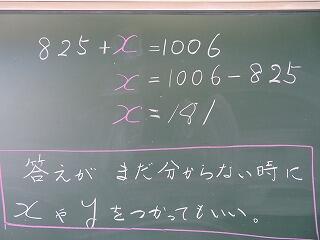 825+x=1006
x=1006-825
x=181
答えが まだ分からない時に
xやyをつかってもいい。